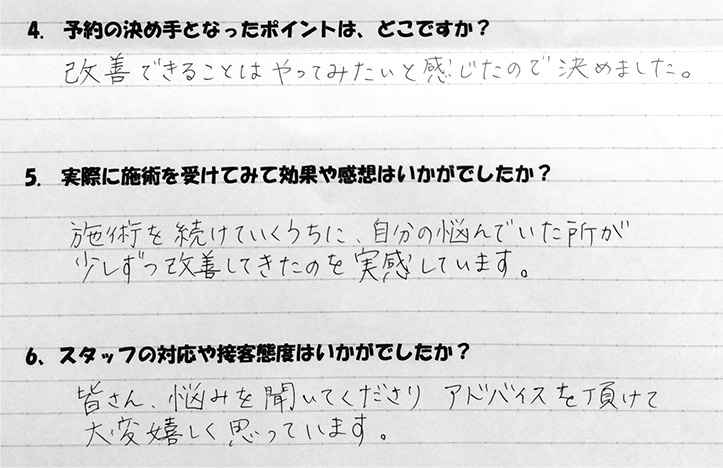 4. 予約の決め手となったポイントは、どこですか？
改善できることは やってみたいと感じたので 決めました。
5. 実際に施術を受けてみて効果や感想はいかがでしたか？
施術を続けていくうちに、自分の悩んでいた所が
少しずつ改善してきたのを実感しています。
6、スタッフの対応や接客態度はいかがでしたか？
皆さん、悩みを聞いてくださり アドバイスを頂けて
大変嬉しく思っています。